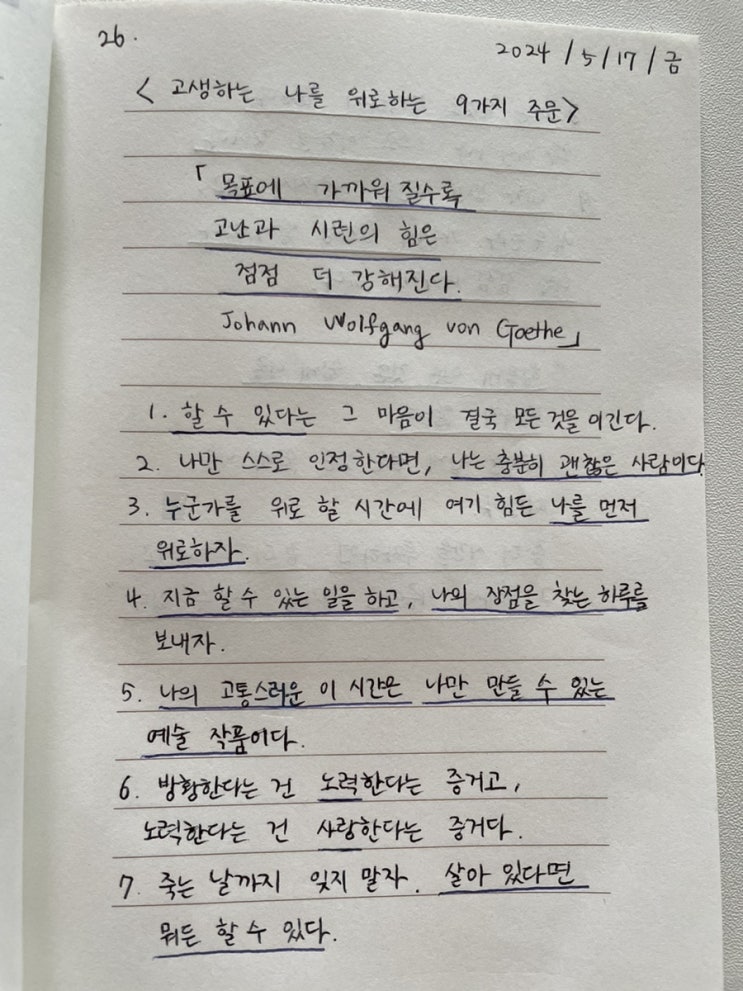 26.
2024 / 5 / 17 / 금
< 고생하는 나를 위로하는 9가지 주문>
「 목표에 가까워 질수록
고난과 시련의 힘은
점점 더 강해진다.
Johann Wolfgang von Goethe」
1. 할 수 있다는 그 마음이 결국 모든 것을 이긴다.
2. 나만 스스로 인정한다면, 나는 충분히 괜찮은 사람이다
3. 누군가를 위로 할 시간에 여기 힘든 나를 먼저
위로하자.
4. 지금 할 수 있는 일을 하고, 나의 장점을 찾는 하루를
보내자.
5. 나의 고통스러운 이 시간은 나만 만들 수 있는
예술 작품이다.
6. 방황한다는 건 노력한다는 증거고,
노력한다는 건 사랑한다는 증거다.
7. 죽는 날까지 잊지 말자. 살아 있다면
뭐든 할 수 있다.